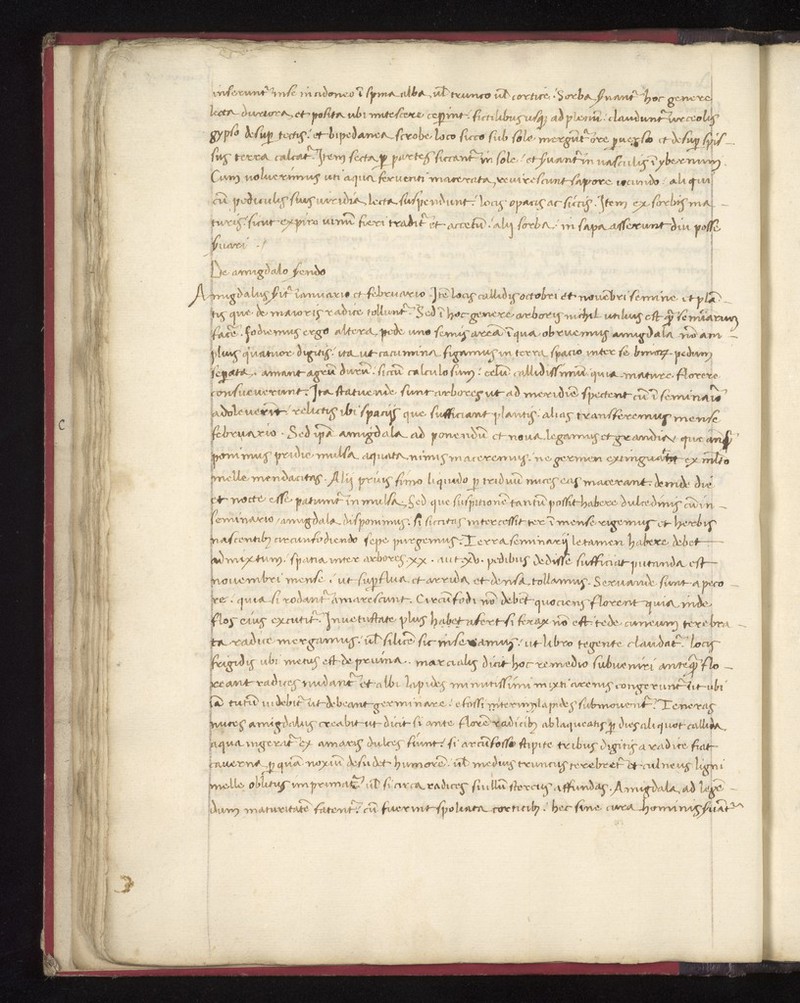 inserunt' inse in cidoneo ī spina alba, ul' trunco ul' cortice. Sorba s'uant' hoc genere
lecta duriora, et posita ubi mitescere ceperint. fictilibus usq; ad plenū. claudunt' urceolis
gypso desup' tectis. et bipedanea scrobe loco sicco sub sole mergūt' ore p'uerso et desup' spis-
sus terra calcat'. Item secta p' partes siccant' in sole. et s'uant' in vasculis ī ybernum.
Cum voluerimus uti aqua ferventi macerata, revirescunt sapore iocundo. aliqui
cū pediculis suis viridia, lecta suspendunt. locis opacis ac siccis. Item ex sorbis ma-
turis. sicut ex piro vinū fieri tradit' et accetū. alij sorba. in sapa asserunt diu posse
s'uari ./
De amigdalo serendo
Amigdalus s'it' ianuario et februario. Itē locis callidis octobri et novēbri semine et plā-
tis que de maioris radice tollunt'. Sed ī hoc genere arboris nichil utilius est q̄ seminariū
facē. fodiemus ergo altera, pede uno semis areā ī qua obruemus amigdala nō am-
plius quatuor digitis. ita ut cacumina figamus in terra, spacio inter se binoꝝ pedum
separata. amant agrū durū. siccū calculosum. celū callidissimū quia mature florere
consueverunt. Ita statuende sunt arbores ut ad meridiē spectent cū ī seminario
adoleverit relictis ibi spaciis que sufficiant plantis. alias transferemus mense
februario. Sed ipā amigdala ad ponendū et nova legamus et grandia, que anq̄
ponimus pridie mulsa aquata nimis maceremus. ne germen extinguat ex nimio
melle mendacitas. Alij prius fimo liquido p' triduū nuces eas macerant. deinde die
et nocte esse patiunt' in mulsa, Sed que suspitionē tantū possit habere dulcedinis cū in
seminario amigdala disponimus. si siccitas intercessit ter ī mense rigemus et herbis
nascentibꝫ circunfodiendo sepe purgemus. Terra seminarij letamen habere debet
admixtum. spatia inter arbores .xx. aut .xv. pedibus dedisse sufficiat putanda est
novembri mense. ut sup'flua et arrida et densa tollamus. Servande sunt a peco-
re. quia si rodant' amarescunt. Circūfodi nō debet quociens florent quia inde
flos eius excutit'. In vetustate plus habet aferet si ferax nō est tede cuneum terebra-
ta radice mergamus. ul' silicē sic inseramus. ut libro tegente claudat'. locis
frigidis ubi metus est de pruina. marcialis dicit hoc remedio subveniri anteq̄ flo-
reant radices nudant' et albi lapides minutissimi mixti arenis congerunt'. ut ubi
iā tutū videbit' ut debeant germinare. effossi interim lapides submovent'. Teneras
nuces amigdalus creabit ut dicit si ante florē radicibꝫ ablaqueatis p' dies aliquot callida
aqua ingerat' ex amaris dulces fiunt. si circūfosso stipite tribus digitis a radice fiat
caverna p' quā noxiū desudet humorē. ul' medius truncus terebret' et cuneus ligni
melle oblitus imprimat'. ul' si circa radices suillū stercus iffundas. Amigdala ad legē-
dam maturitatē fatent'. cū fuerint spoliata corticibꝫ. hec sine cura hominis s'uant'
c